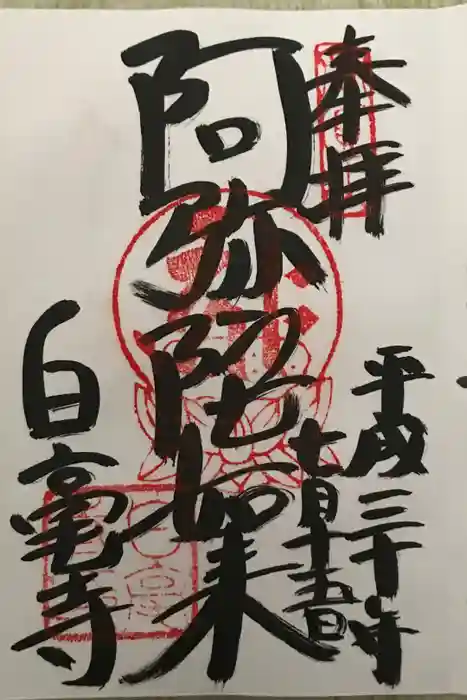 奉拝
平成三十年
七月十五日
阿弥陀如来
白毫寺